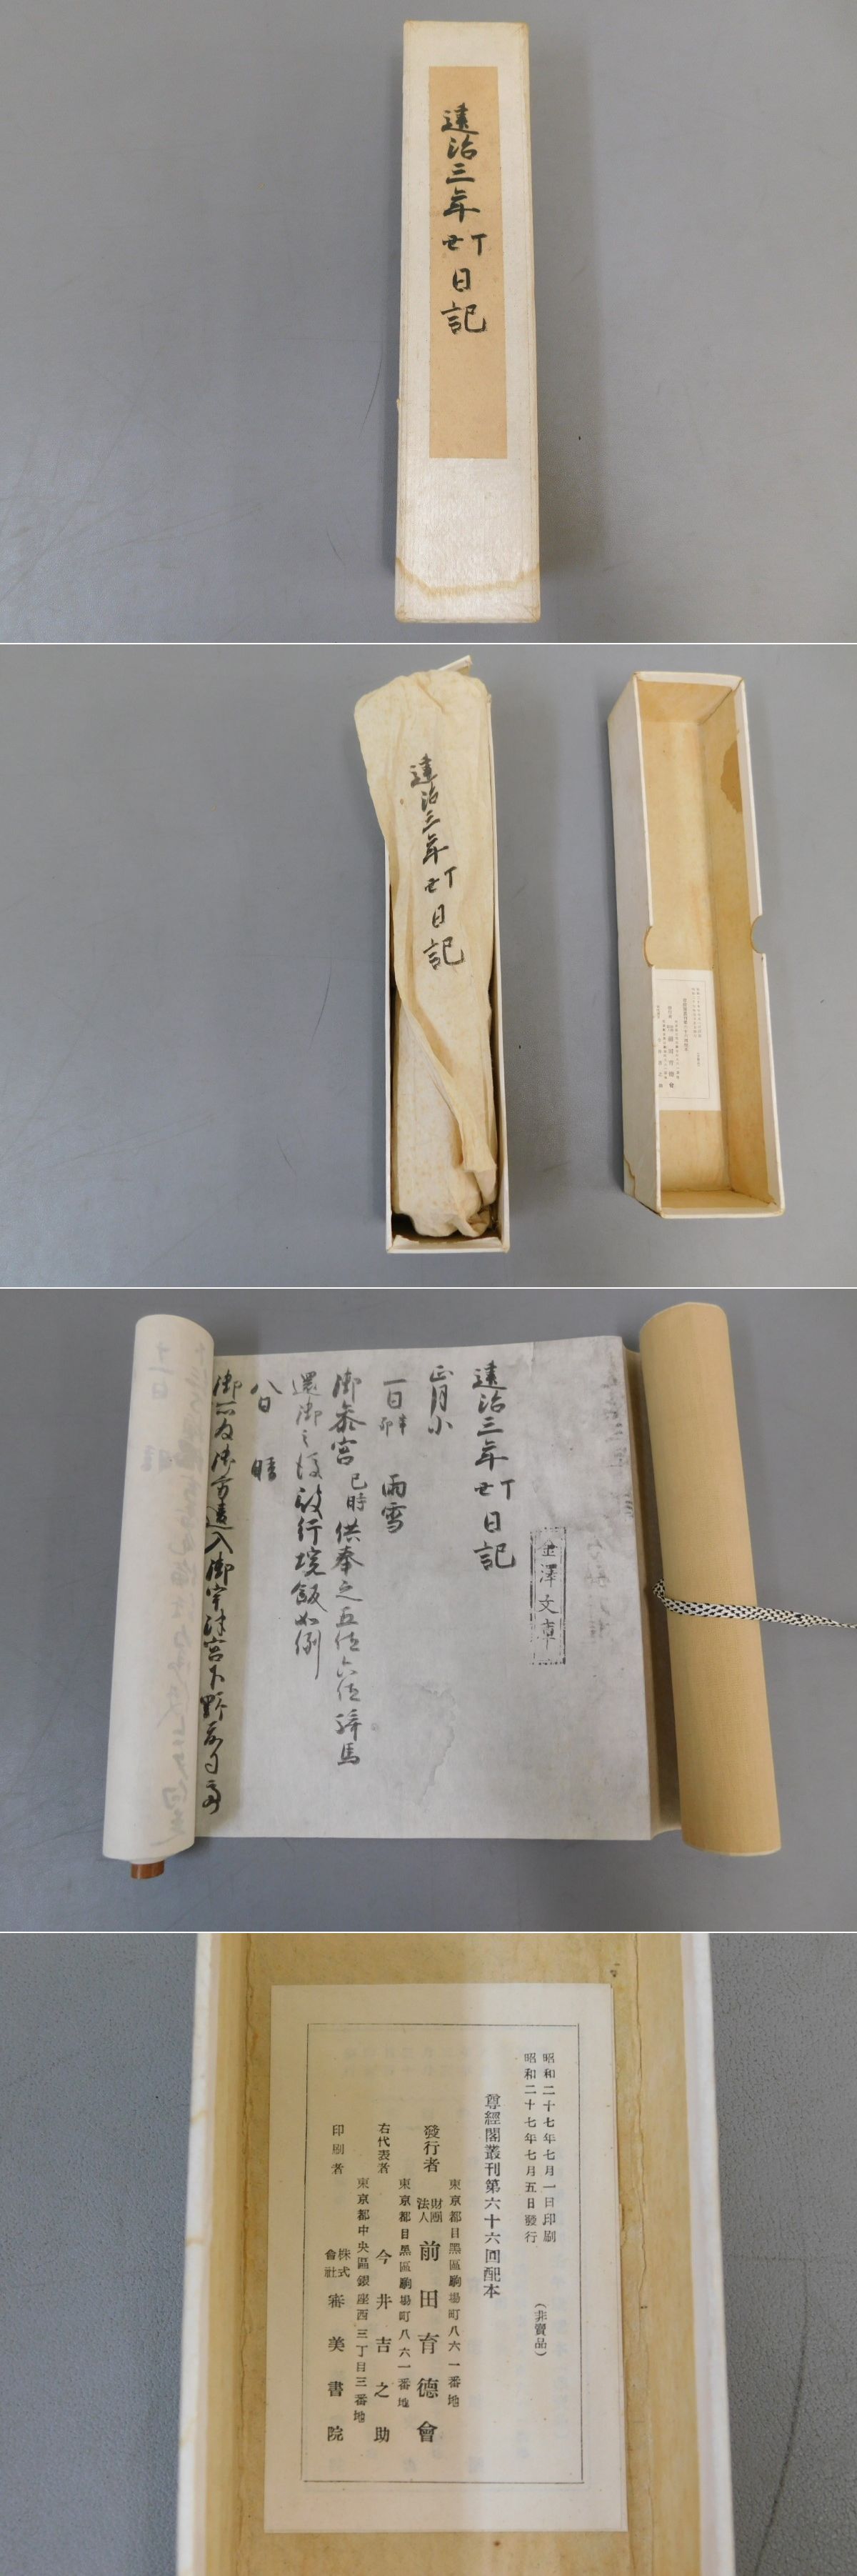 建治三年丁丑日記
建治三年丁丑日記
建治三年丁丑日記
金澤文庫
正月小
一日辛卯 雨雪
御參宮巳時供奉之五位六位騎馬
還御之後被行垸飯如例
八日 晴
昭和二十七年七月一日印刷
昭和二十七年七月五日發行
(非賣品)
尊經閣叢刊第六十六回配本
東京都目黑區駒場町八六一番地
發行者 財團法人 前田育德會
東京都目黑區駒場町八六一番地
右代表者 今井吉之助
東京都中央區銀座西三丁目三番地
印刷者 株式會社 審美書院